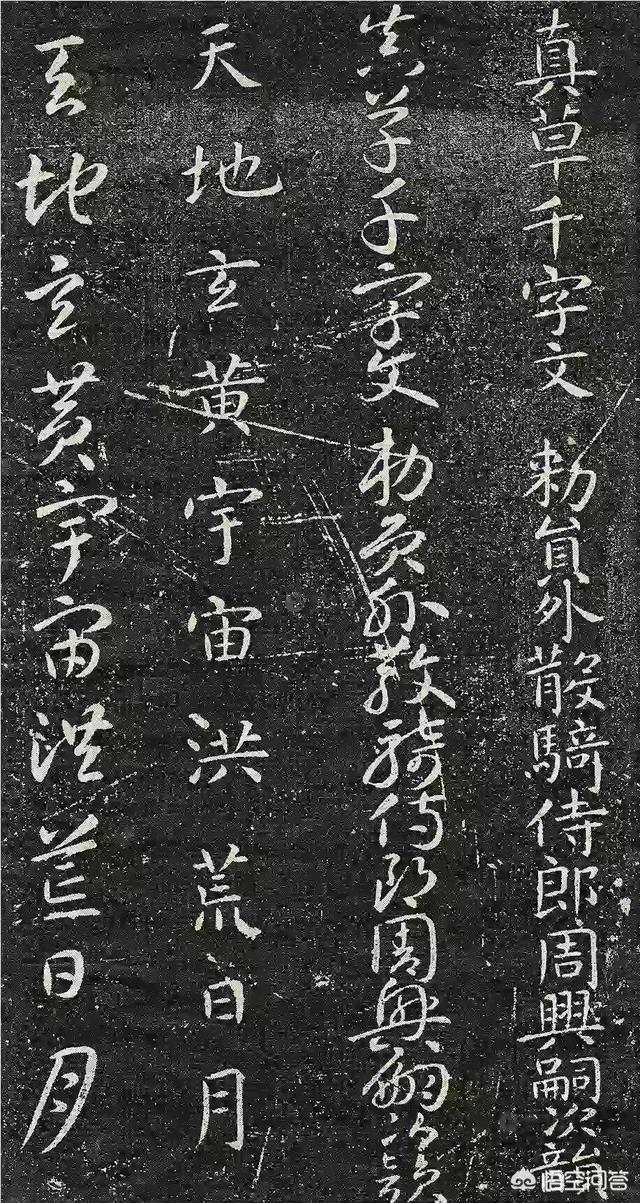 真草千字文 勑員外散騎侍郎周興嗣次韻
真草千字文 勑員外散騎侍郎周興嗣次韻
天地玄黄宇宙洪荒日月
天地玄黄宇宙洪荒日月
悟空问答